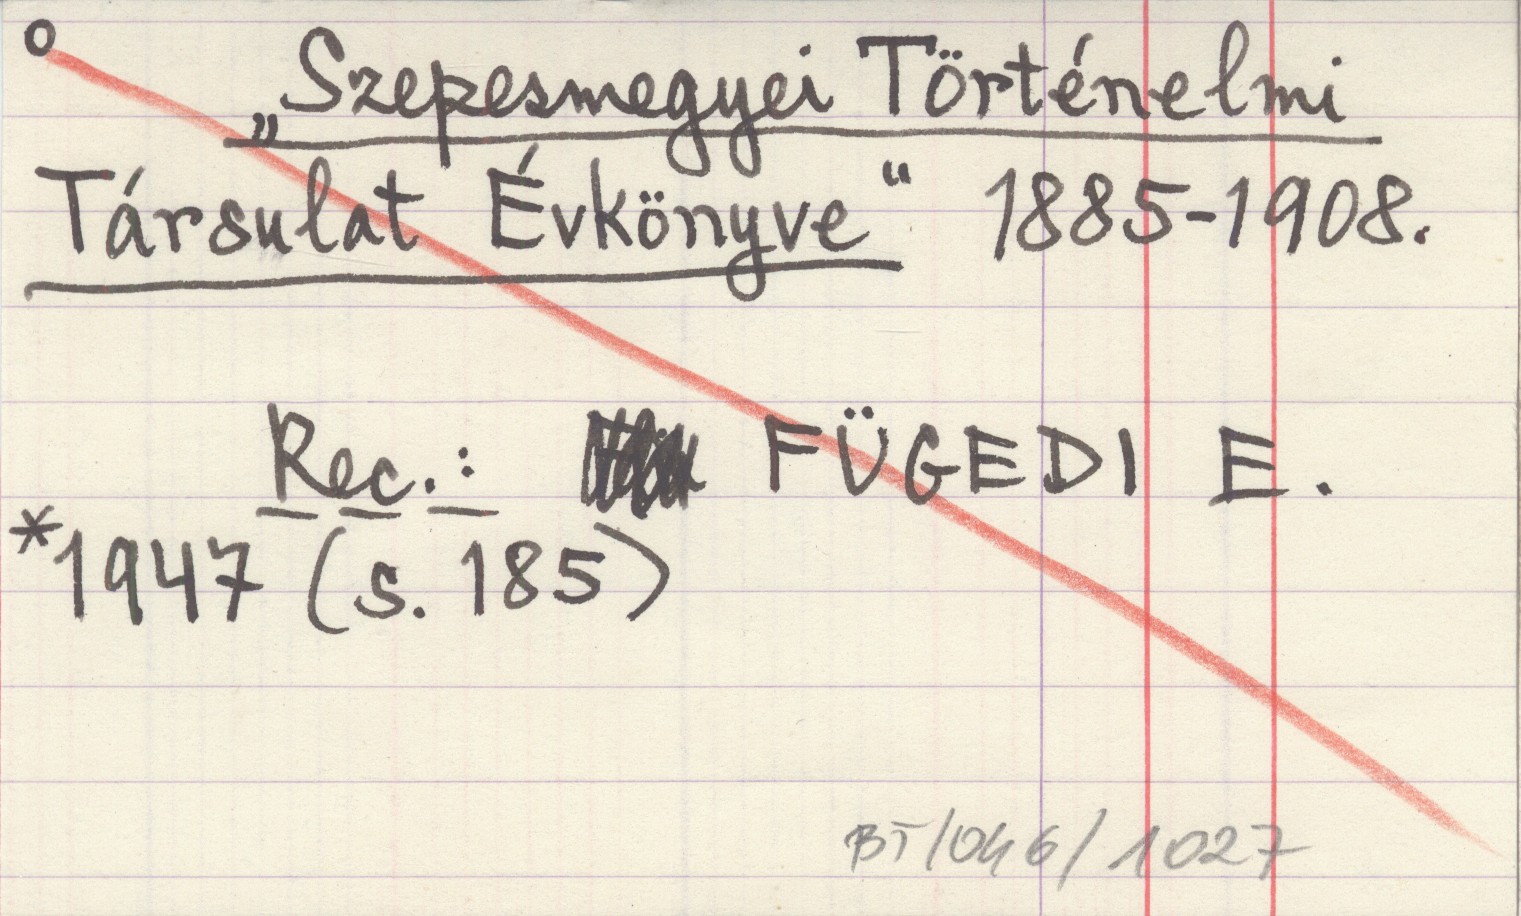 o
„Szepesmegyei Történelmi
Társulat Évkönyve“ 1885-1908.
Rec.: FÜGEDI E.
*1947 (s. 185)
BT/046/1027